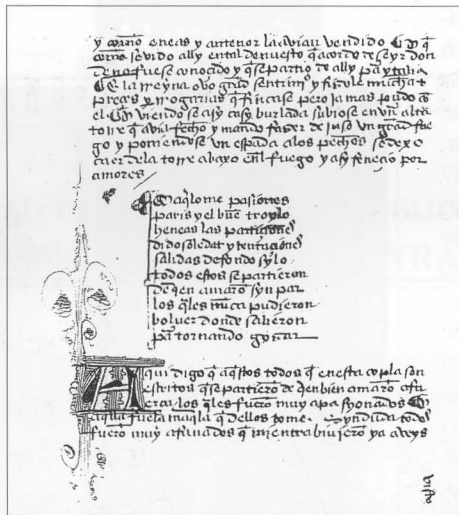 y como eneas y antenor la avian vendido E q̃
como se vido ally en tal denuesto q̃ acorde de se yr don
de no fuese conoçido y q̃ se partio de ally pa ytalia
E la reyna ovo grãd sentimiº y fizole mucha
preças y rrogarias q̃ fincase pero jamas pudo cõ
el E viendose asy casy burlada subiose en vna alta
torre q̃ avia fecho y mando fazer de juso vn grãd fue
go y poniendose vn espada alos pechos se dexo
caer dela torre abaxo enl fuego y asy feneçio por
amores
paris y el buẽ troylo
heneas las
dido soledat y tentaciones
salidas de fondo sylo
todos estos se partieron
de q̃en amarõ syn par
los q̃les nũca pudieron
bolver donde salieron
pa tornando gozar
Aqui digo q̃ aq̃stos todos q̃ en esta copla son
escritos q̃ se partierõ de q̃en bien amarõ a fu
erça los q̃les fuerõ muy apasyonados E
aq̃lla fuerça q̃ dellos tome Syn duda todos
fuerõ muy afinados q̃ mientra biviero ya aveys